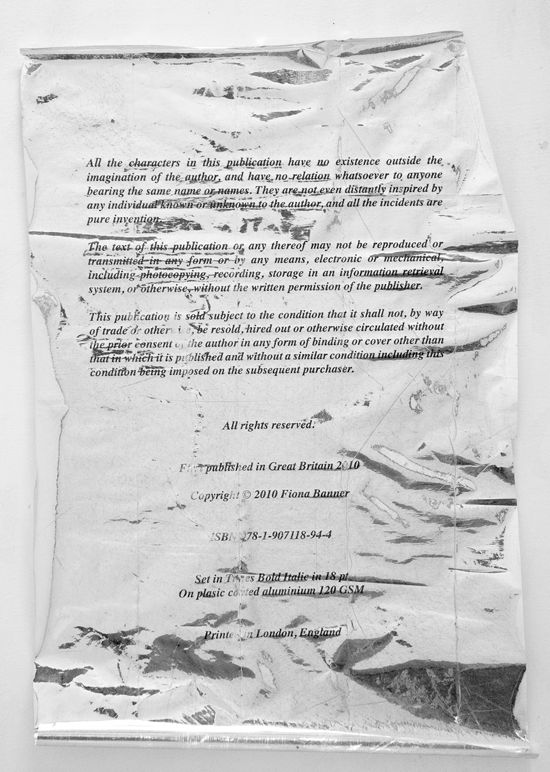 All the characters in this publication have no existence outside the
imagination of the author, and have no relation whatsoever to anyone
bearing the same name or names. They are not even distantly inspired by
any individual known or unknown to the author, and all the incidents are
pure invention.
The text of this publication or any thereof may not be reproduced or
transmitted in any form or by any means, electronic or mechanical,
including photocopying, recording, storage in an information retrieval
system, or otherwise, without the written permission of the publisher.
This publication is sold subject to the condition that it shall not, by way
of trade or otherwise, be resold, hired out or otherwise circulated without
the prior consent of the author in any form of binding or cover other than
that in which it is published and without a similar condition including this
condition being imposed on the subsequent purchaser.
All rights reserved.
First published in Great Britain 2010
Copyright © 2010 Fiona Banner
ISBN 978-1-907118-94-4
Set in Times Bold Italic in 18 pt
On plasic coated aluminium 120 GSM
Printed in London, England